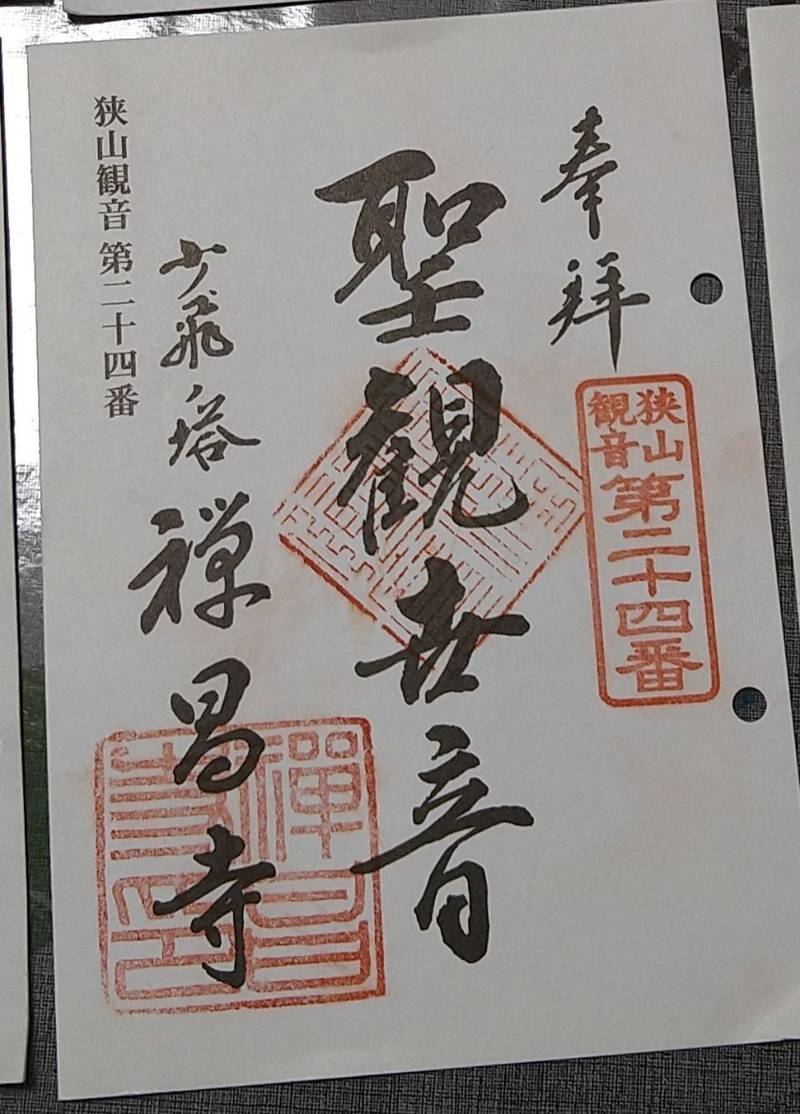 奉拝
狭山観音
第二十四番
聖観世音
少飛ノ塔 禅昌寺
禪昌寺印
狭山観音 第二十四番